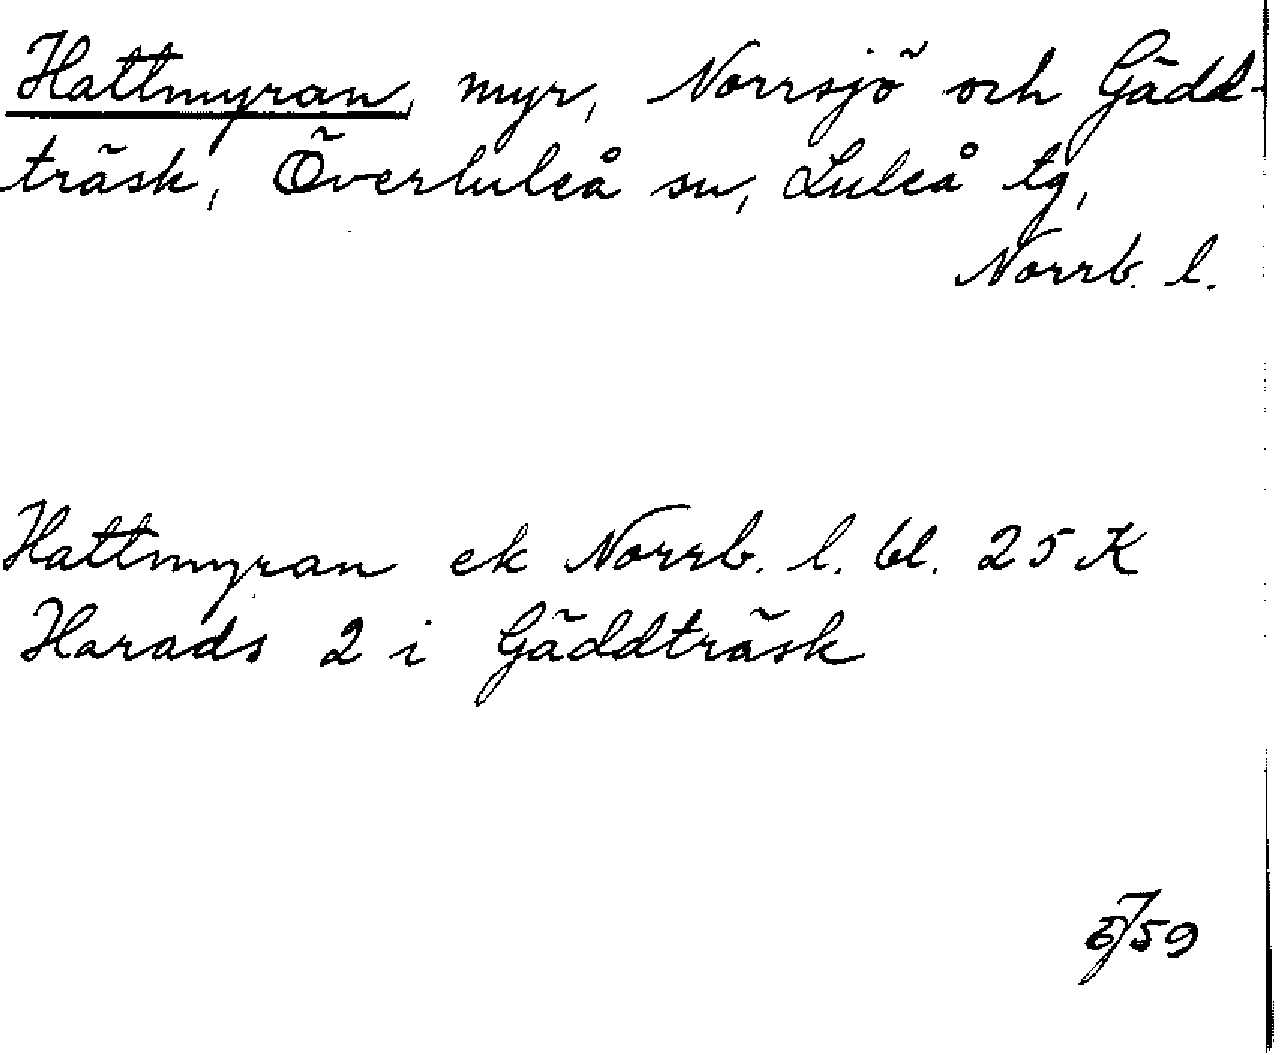 Hattmyran, myr, Norrsjö och Gädd-
träsk, Överluleå sn, Luleå tg,
Norrb. l.
Hattmyran ek Norrb. l. bl. 25 K
Harads 2 i Gäddträsk